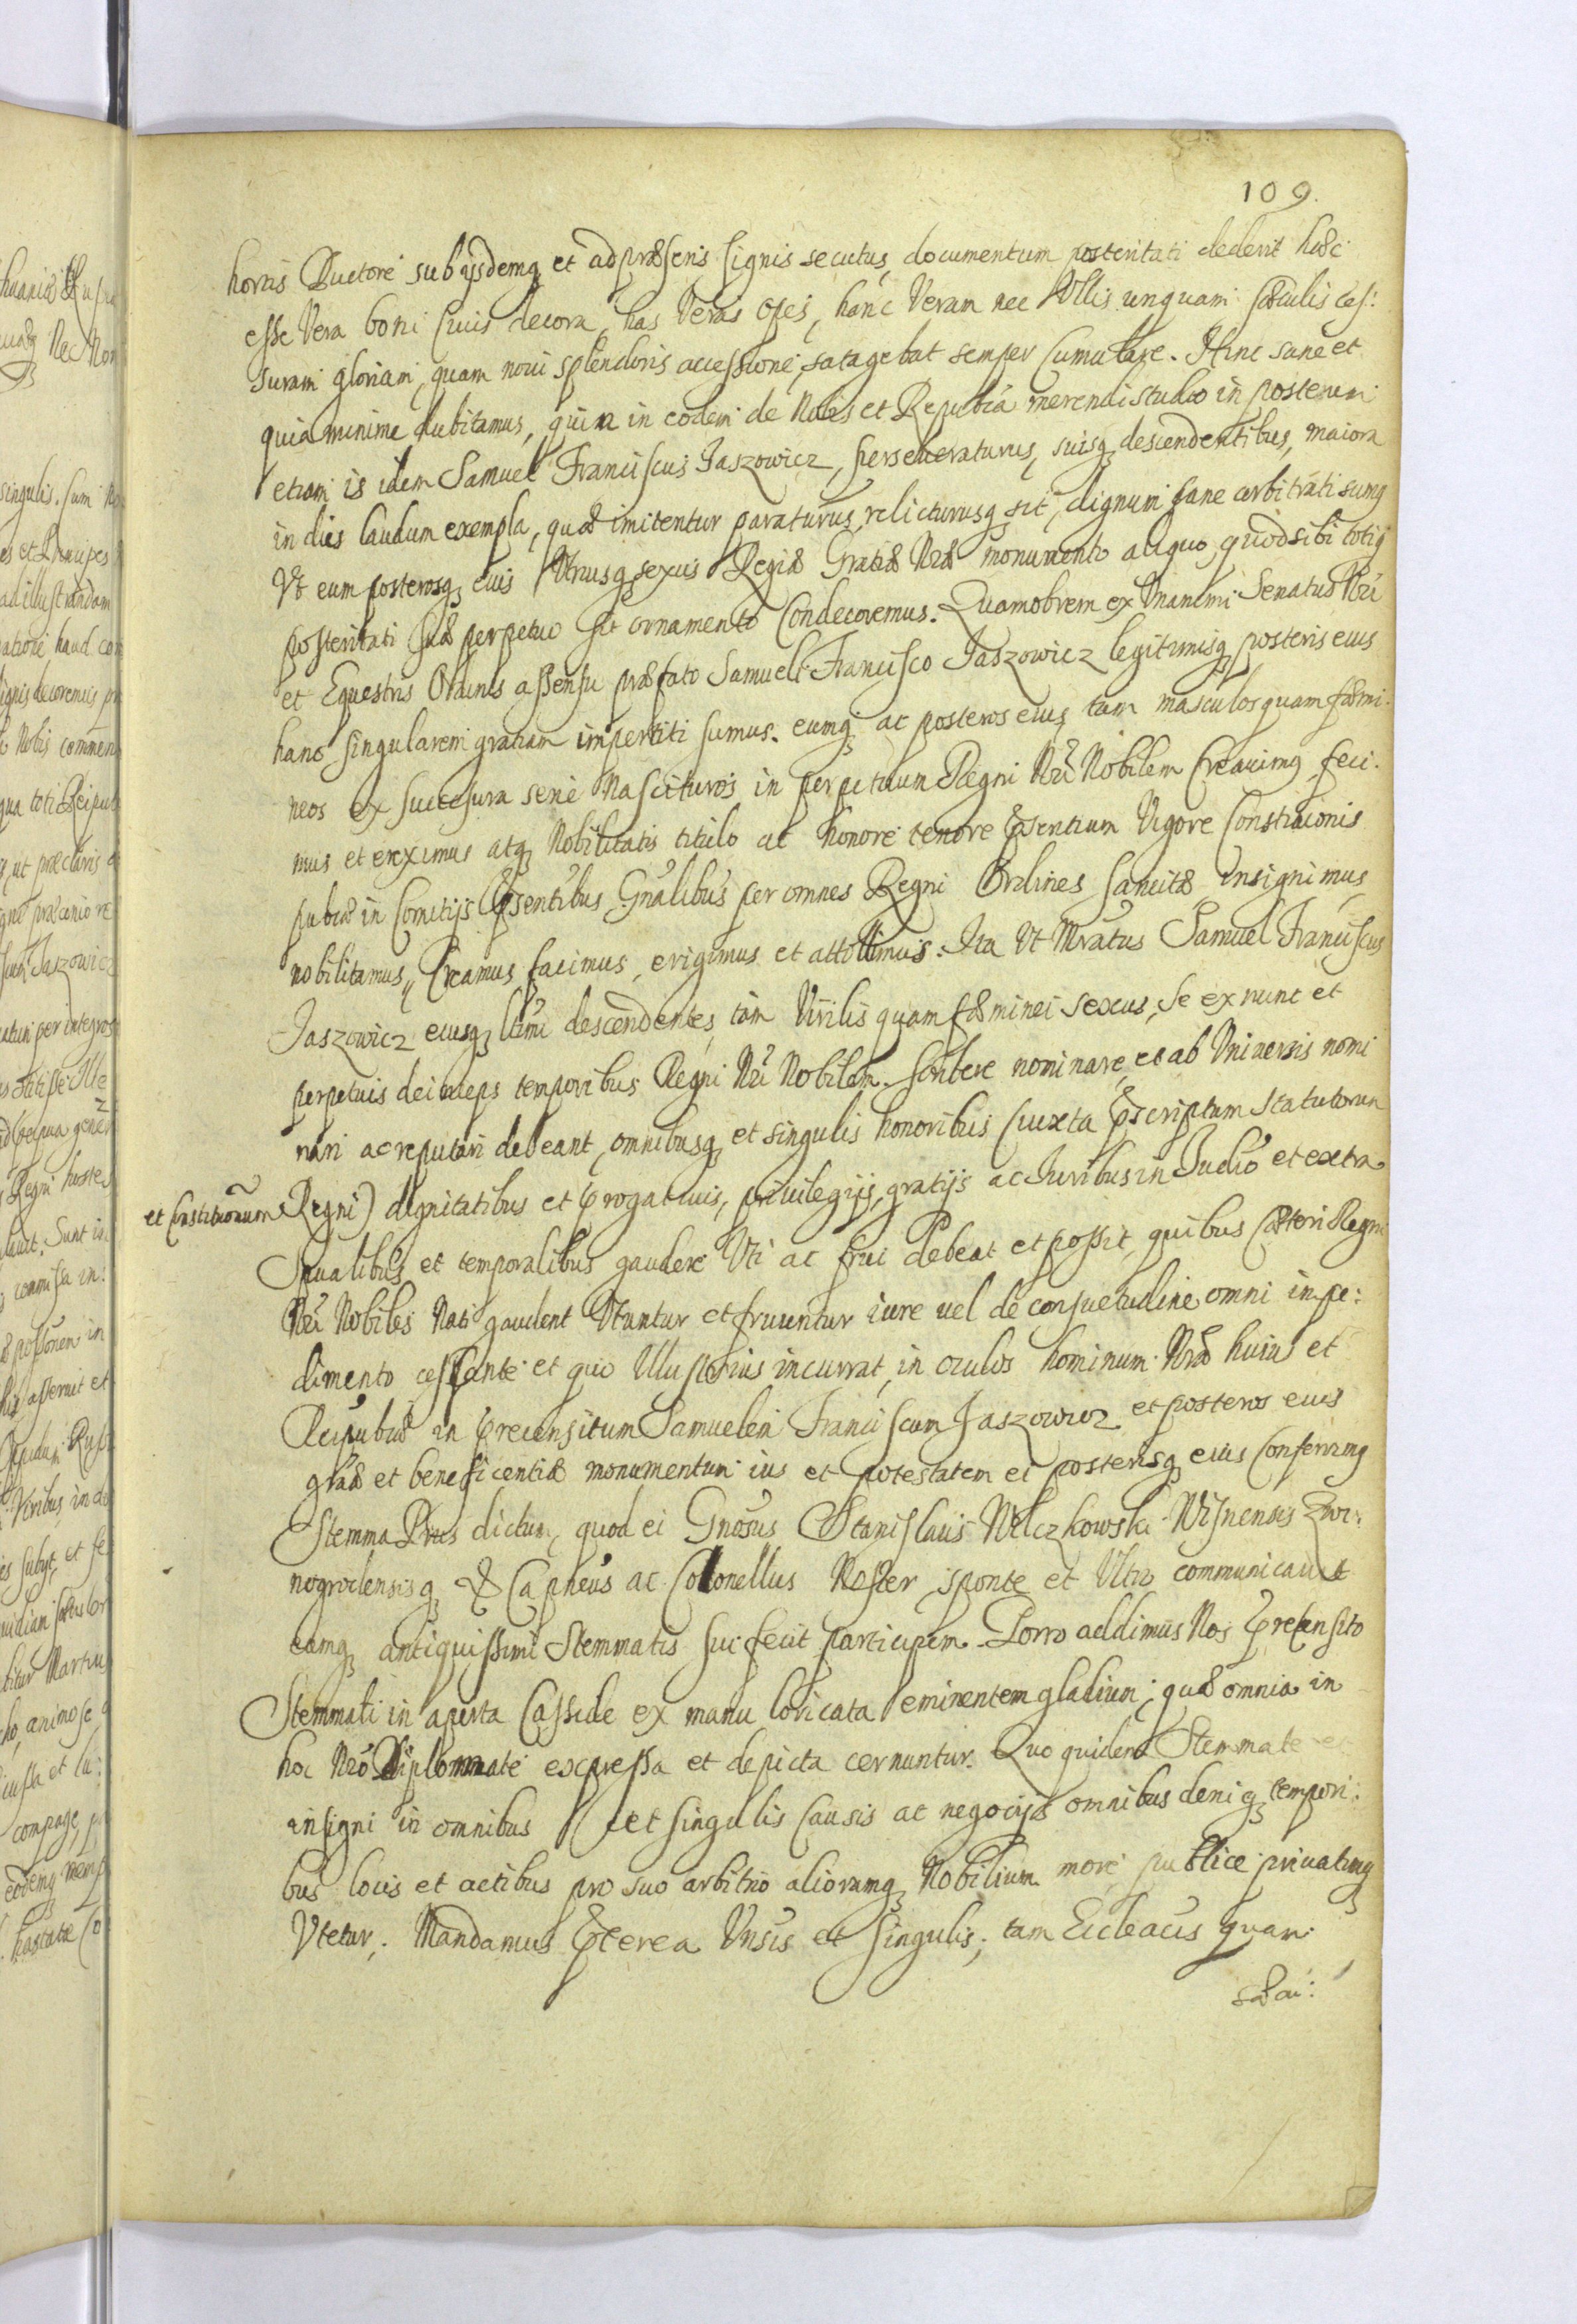 109.
horis Ductore sub ijsdemq et ad præsens signis secutus, documentum posteritati dederit hæc
esse Vera boni Ciuis decora, has Veras opes, hanc Veram nec Vllis unquam sæculis ces:
suram gloriam, quam noui splendoris accessione, satagebat semper Cumulare. Hinc sane et
quia minime dubitamus, quin in eodem de Nobis et Republica merendi studio in posterum
etiam is idem Samuel Franciscus Jaszowicz, perseueraturus, suisq descendentibus, maiora
in dies laudum exempla, quæ imitentur paraturus, relicturusq sit, dignum sane arbitrati sumq
Vt eum posterosq eius Vtriusq sexus Regiæ Gratiæ Nræ monumento aliquo, quod sibi totiq
posteritati suæ perpetuo sit ornamento Condecoremus. Quamobrem ex Vnanimi Senatus Nri
et Equestris Ordinis assensu præfato Samueli Francisco Jaszowicz legitimisq posteris eius
hanc singularem gratiam impertiti sumus. eumq ac posteros eius tam masculos quam fæmi:
neos ex successura serie Nascituros in perpetuum Regni Nri Nobilem Creauimq feci:
mus et ereximus atq Nobilitatis titulo ac honore tenore Psentium Vigore Constitionis
publicæ in Comitijs Psentibus Gnalibus per omnes Regni Ordines sancitæ insignimus,
nobilitamus, Creamus, facimus, erigimus et attollimus. Ita Vt Mratus Samuel Franciscus
Jaszowicz eiusq ltimi descendentes, tam Virilis quam fæminei sexus, Se ex nunc et
perpetuis deinceps temporibus Regni Nri Nobilem. scribere nominare, et ab Vniuersis nomi
nari ac reputari debeant, omnibusq et singulis honoribus (iuxta Pscriptum Statutorum
et Constitionum Regni) dignitatibus et Progatiuis, priuilegijs, gratijs ac Iuribus in Iudio et extra
Spualibus et temporalibus gaudere Vti ac frui debeat et possit, quibus Cæteri Regni
Nri Nobiles Nati gaudent Vtuntur et fruuntur iure uel de consuetudine omni impe:
dimento cessante et quo Illustrius incurrat, in oculos hominum Nræ huius et
Reipubcæ in Precensitum Samuelem Franciscum Jaszowicz et posteros eius
græ et beneficentiæ monumentum ius et potestatem ei posterisq eius Conferimq
Stemma Prus dictum, quod ei Gnosus Stanislaus Wilczkowski Wisnensis Zwi:
nogrodensisq & Capneus ac Colonellus Noster sponte et Vltro communicauit
eumq antiquissimi Stemmatis sui fecit participem. Porro addimus Nos Precensito
Stemmati in aperta Casside ex manu loricata eminentem gladium; quæ omnia in
hoc Nro Diplomate expressa et depicta cernuntur. Quo quidem Stemmate et
insigni in omnibus et singulis Causis ac negocijs omnibus deniq tempori:
bus locis et actibus pro suo arbitrio aliorumq Nobilium more publice priuatimq
Vtetur. Mandamus Pterea Vnsis et singulis, tam Eccleacis quam
sæcu: